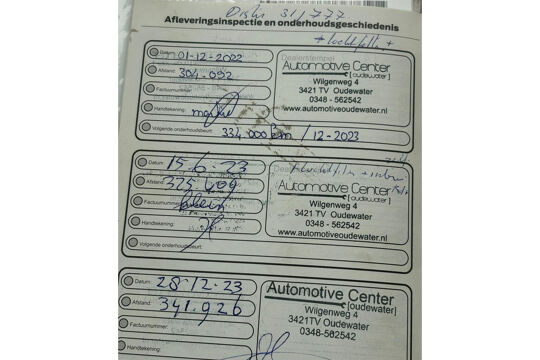 31/777
Afleveringsinspectie en onderhoudsgeschiedenis
+ luchtfilter +
Datum: 01-12-2022
Dealerstempel
Afstand: 304.092
Automotive Center
[oudewater]
Wilgenweg 4
3421 TV Oudewater
0348 - 562542
www.automotiveoudewater.nl
Factuurnummer:
Handtekening:
Volgende onderhoudsbeurt: 334.000 km / 12-2023
Datum: 15.6.23
Afstand: 325.409
Automotive Center
[oudewater]
Wilgenweg 4
3421 TV Oudewater
0348 - 562542
www.automotiveoudewater.nl
Factuurnummer:
Handtekening:
Volgende onderhoudsbeurt:
Datum: 28.12.23
Afstand: 341.926
Automotive Center
[oudewater]
Wilgenweg 4
3421TV Oudewater
0348-562542
Factuurnummer:
Handtekening: